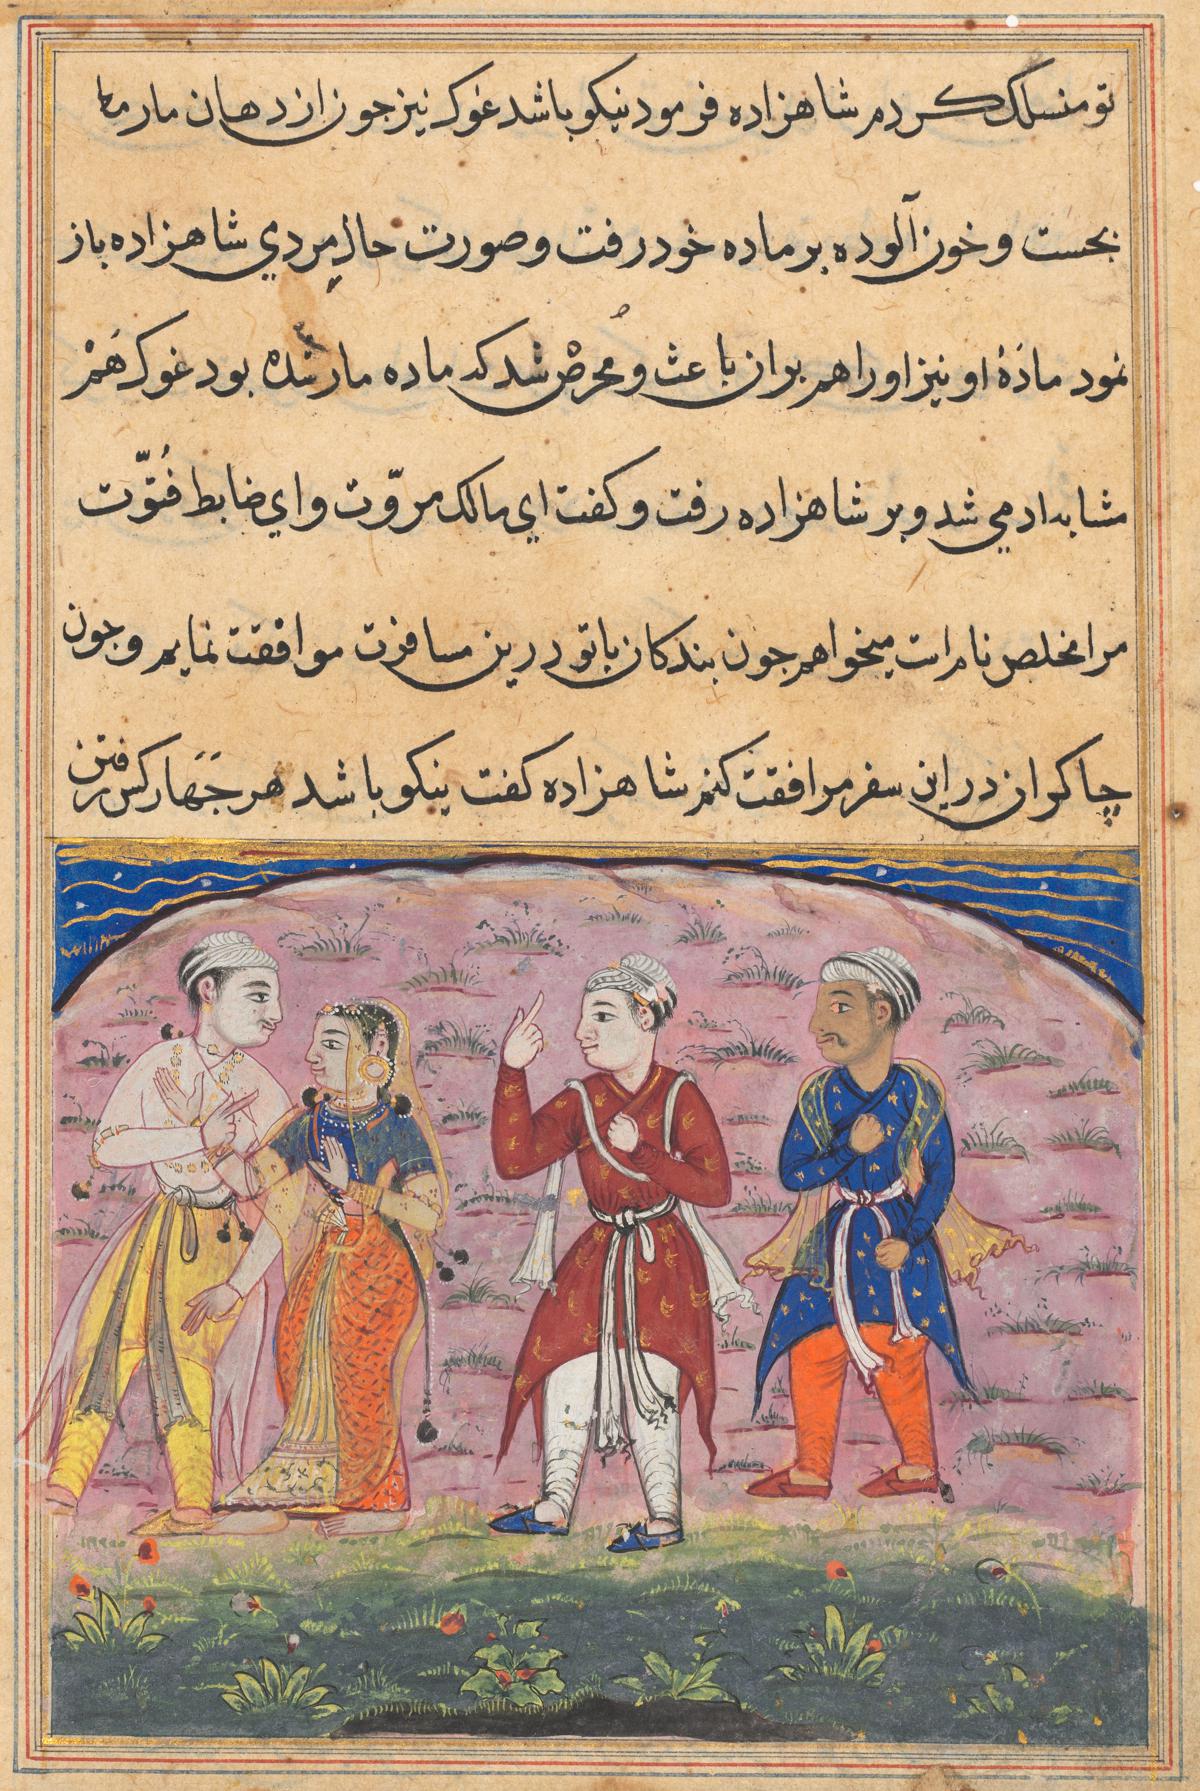 تو منسلک کردم شاهزاده فرمود نیکو باشد غوک نیز جون از دهان مار
بجست و خون آلوده بر ماده خود رفت و صورت حال مردي شاهزاده باز
نمود مادۀ او نیز اورا هم بران باعث و محرض شد که ماده مار شده بود غوک هم
مشا بدادمي شد و بر شاهزاده رفت و کفت اي مالک مروّت و اي ضابط فُتوّت
مرا مخلص نام است میخواهم جون بندکان با تو درین مسافرت موافقت نمایم و جون
چاکران در این سفر موافقت کنم شاهزاده کفت نیکو باشد هر جَهَار کس رفتن